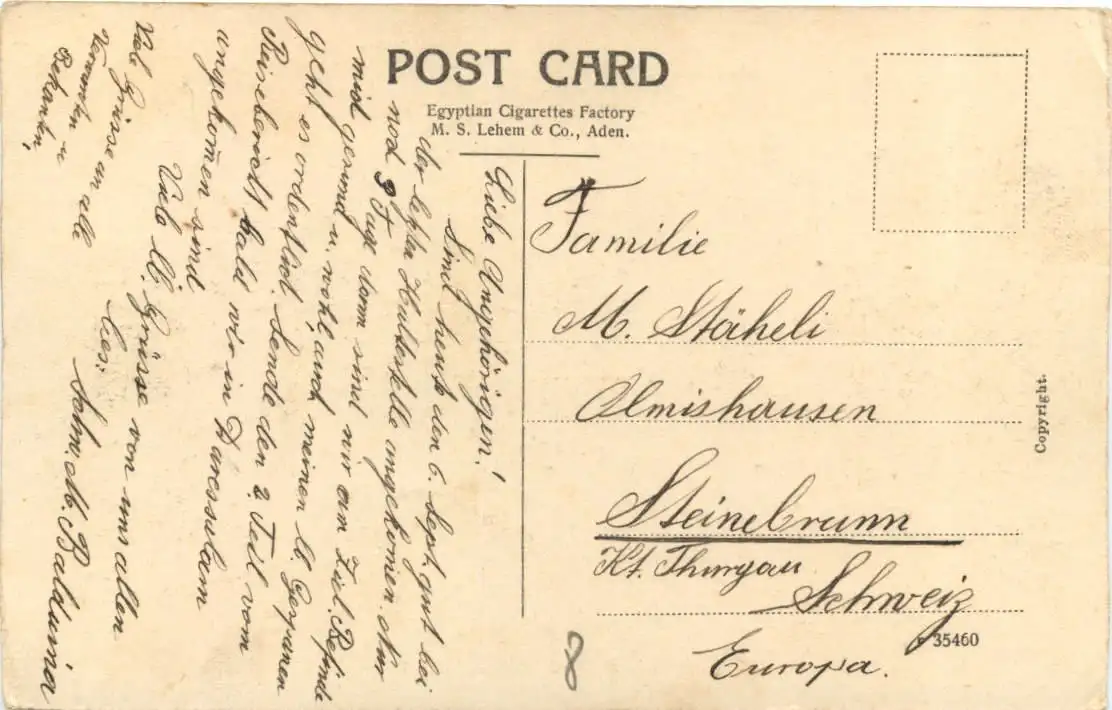 POST CARD
Egyptian Cigarettes Factory
M. S. Lehem & Co., Aden.
Liebe Angehörigen!
Sind heute den 6. Sept. gut bei
der letzten Haltestelle angekom̄en. Nur
noch 3 Tage dann sind wir am Ziel. Befinde
mich gesund u. wohl, auch meinen lb.
geht es ordentlich. Sende den 2. Teil vom
Reisebericht bald wir in Daressalam
angekom̄en sind
Viele lb. Grüsse von uns allen
bes.
Schw. M. Balduina
Viele Grüsse an alle
Verwanten u
Bekanten,
Familie
M. Stäheli
Olmishausen
Steinebrunn
Kt. Thurgau
Schweiz
Europa.
35460
Copyright.
8